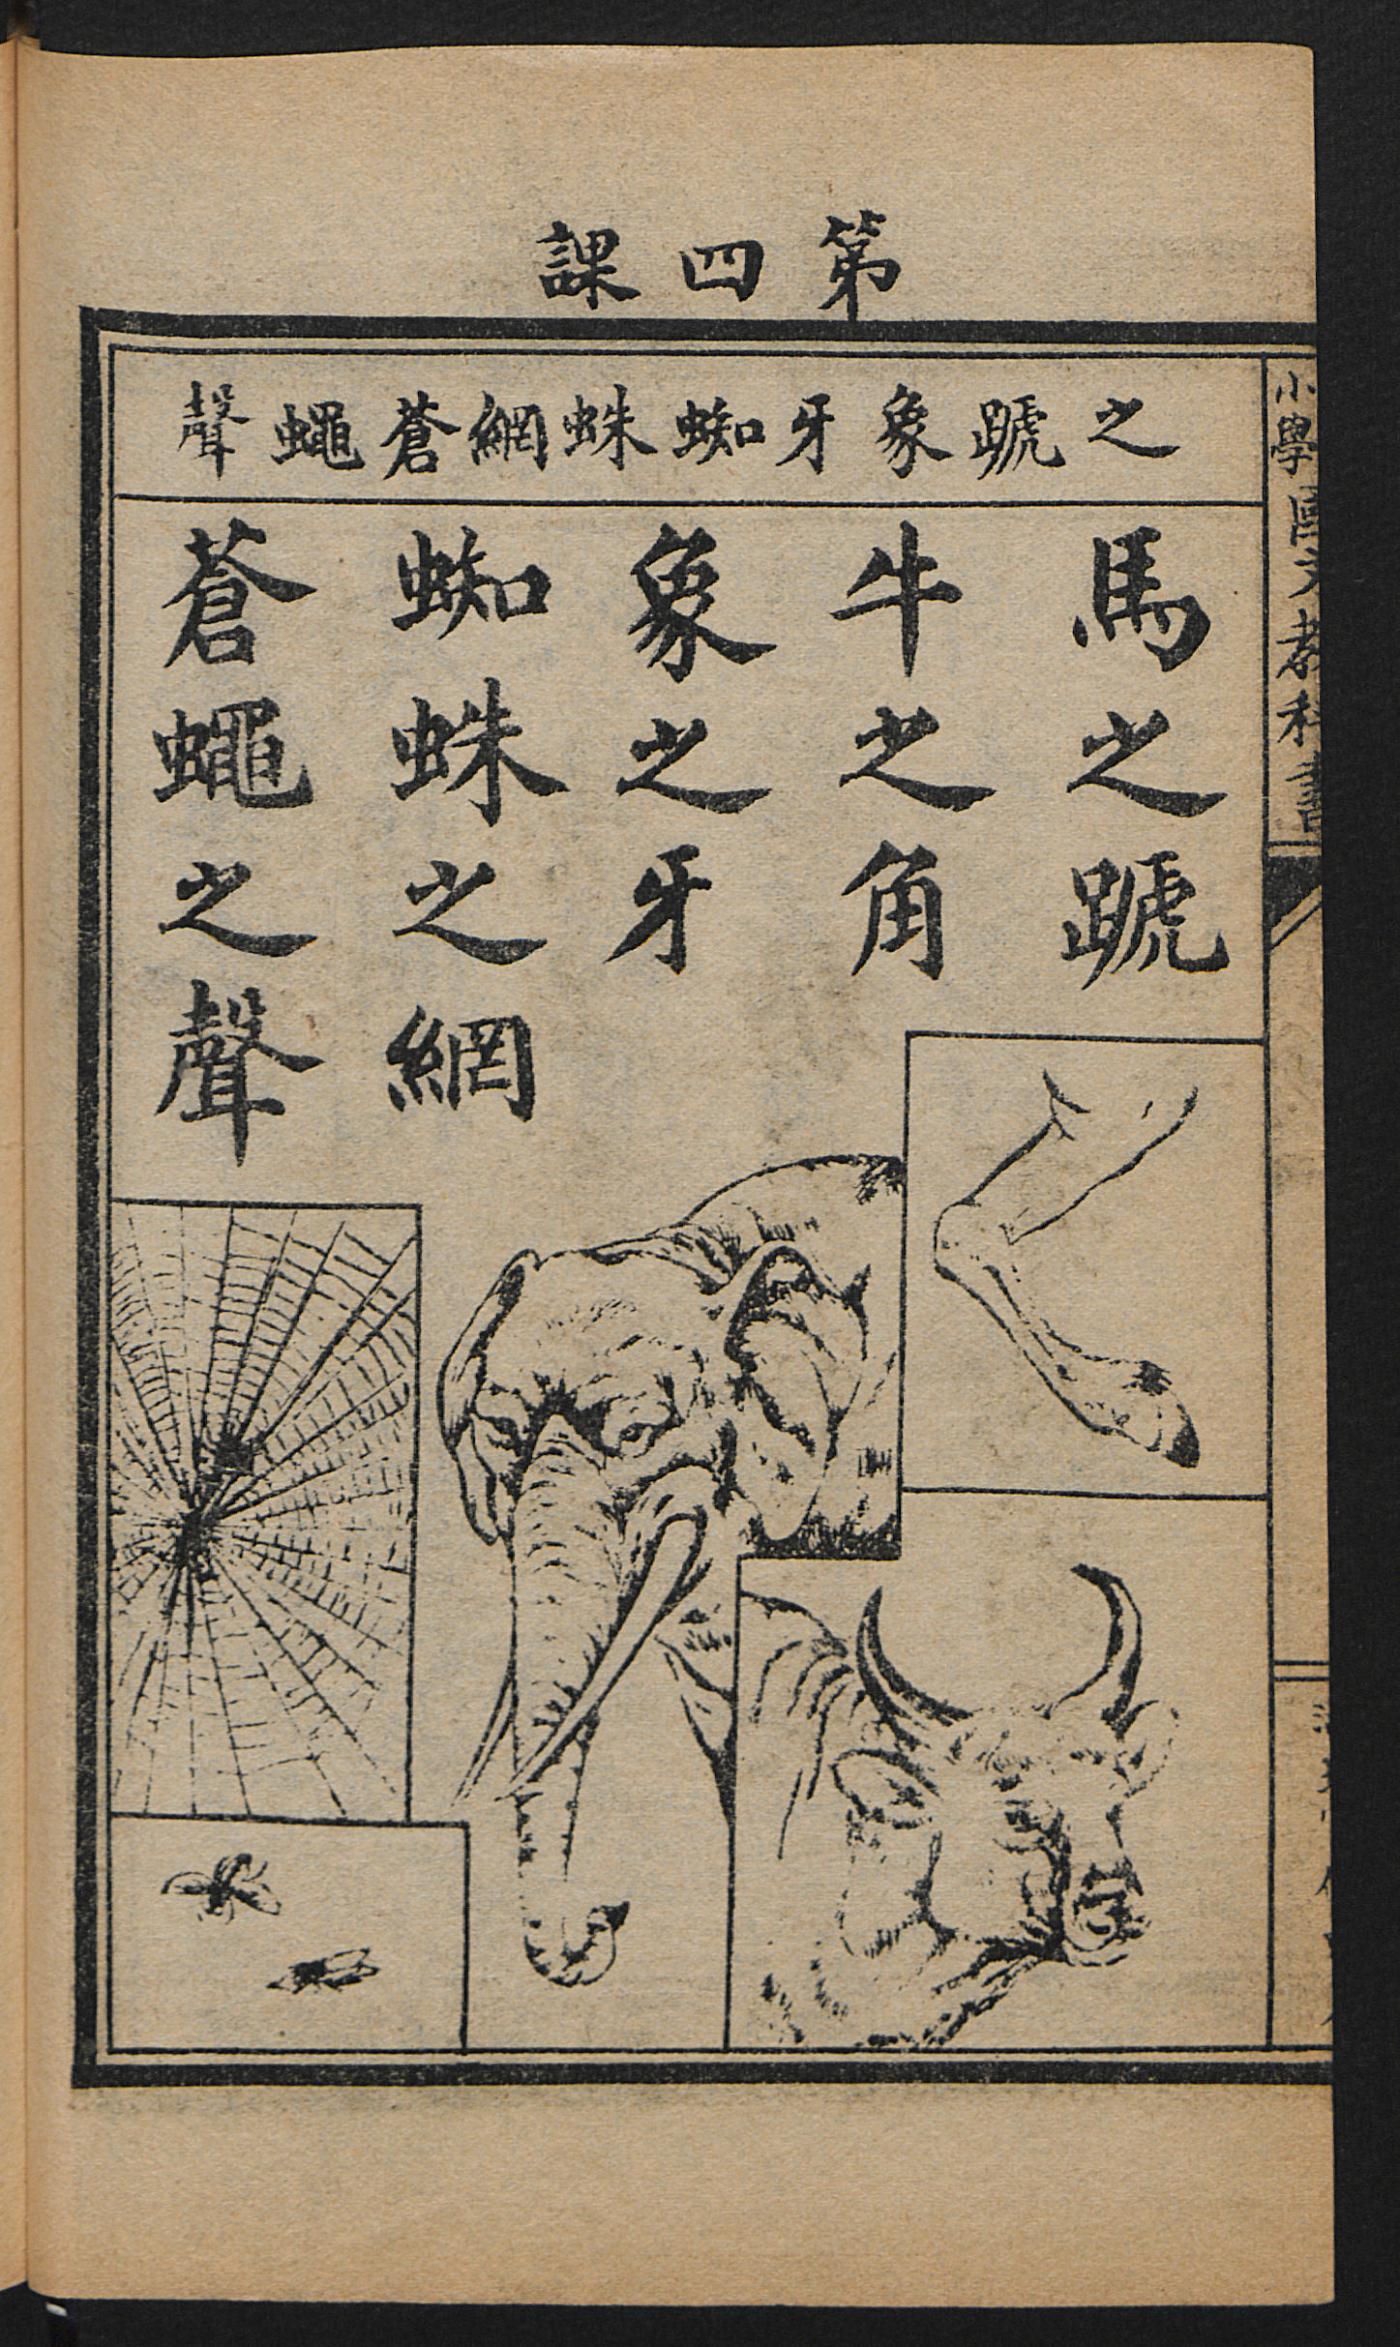 第四課
之蹏象牙蜘蛛網蒼蠅聲
馬之蹏
牛之角
象之牙
蜘蛛之網
蒼蠅之聲
小學國文教科書